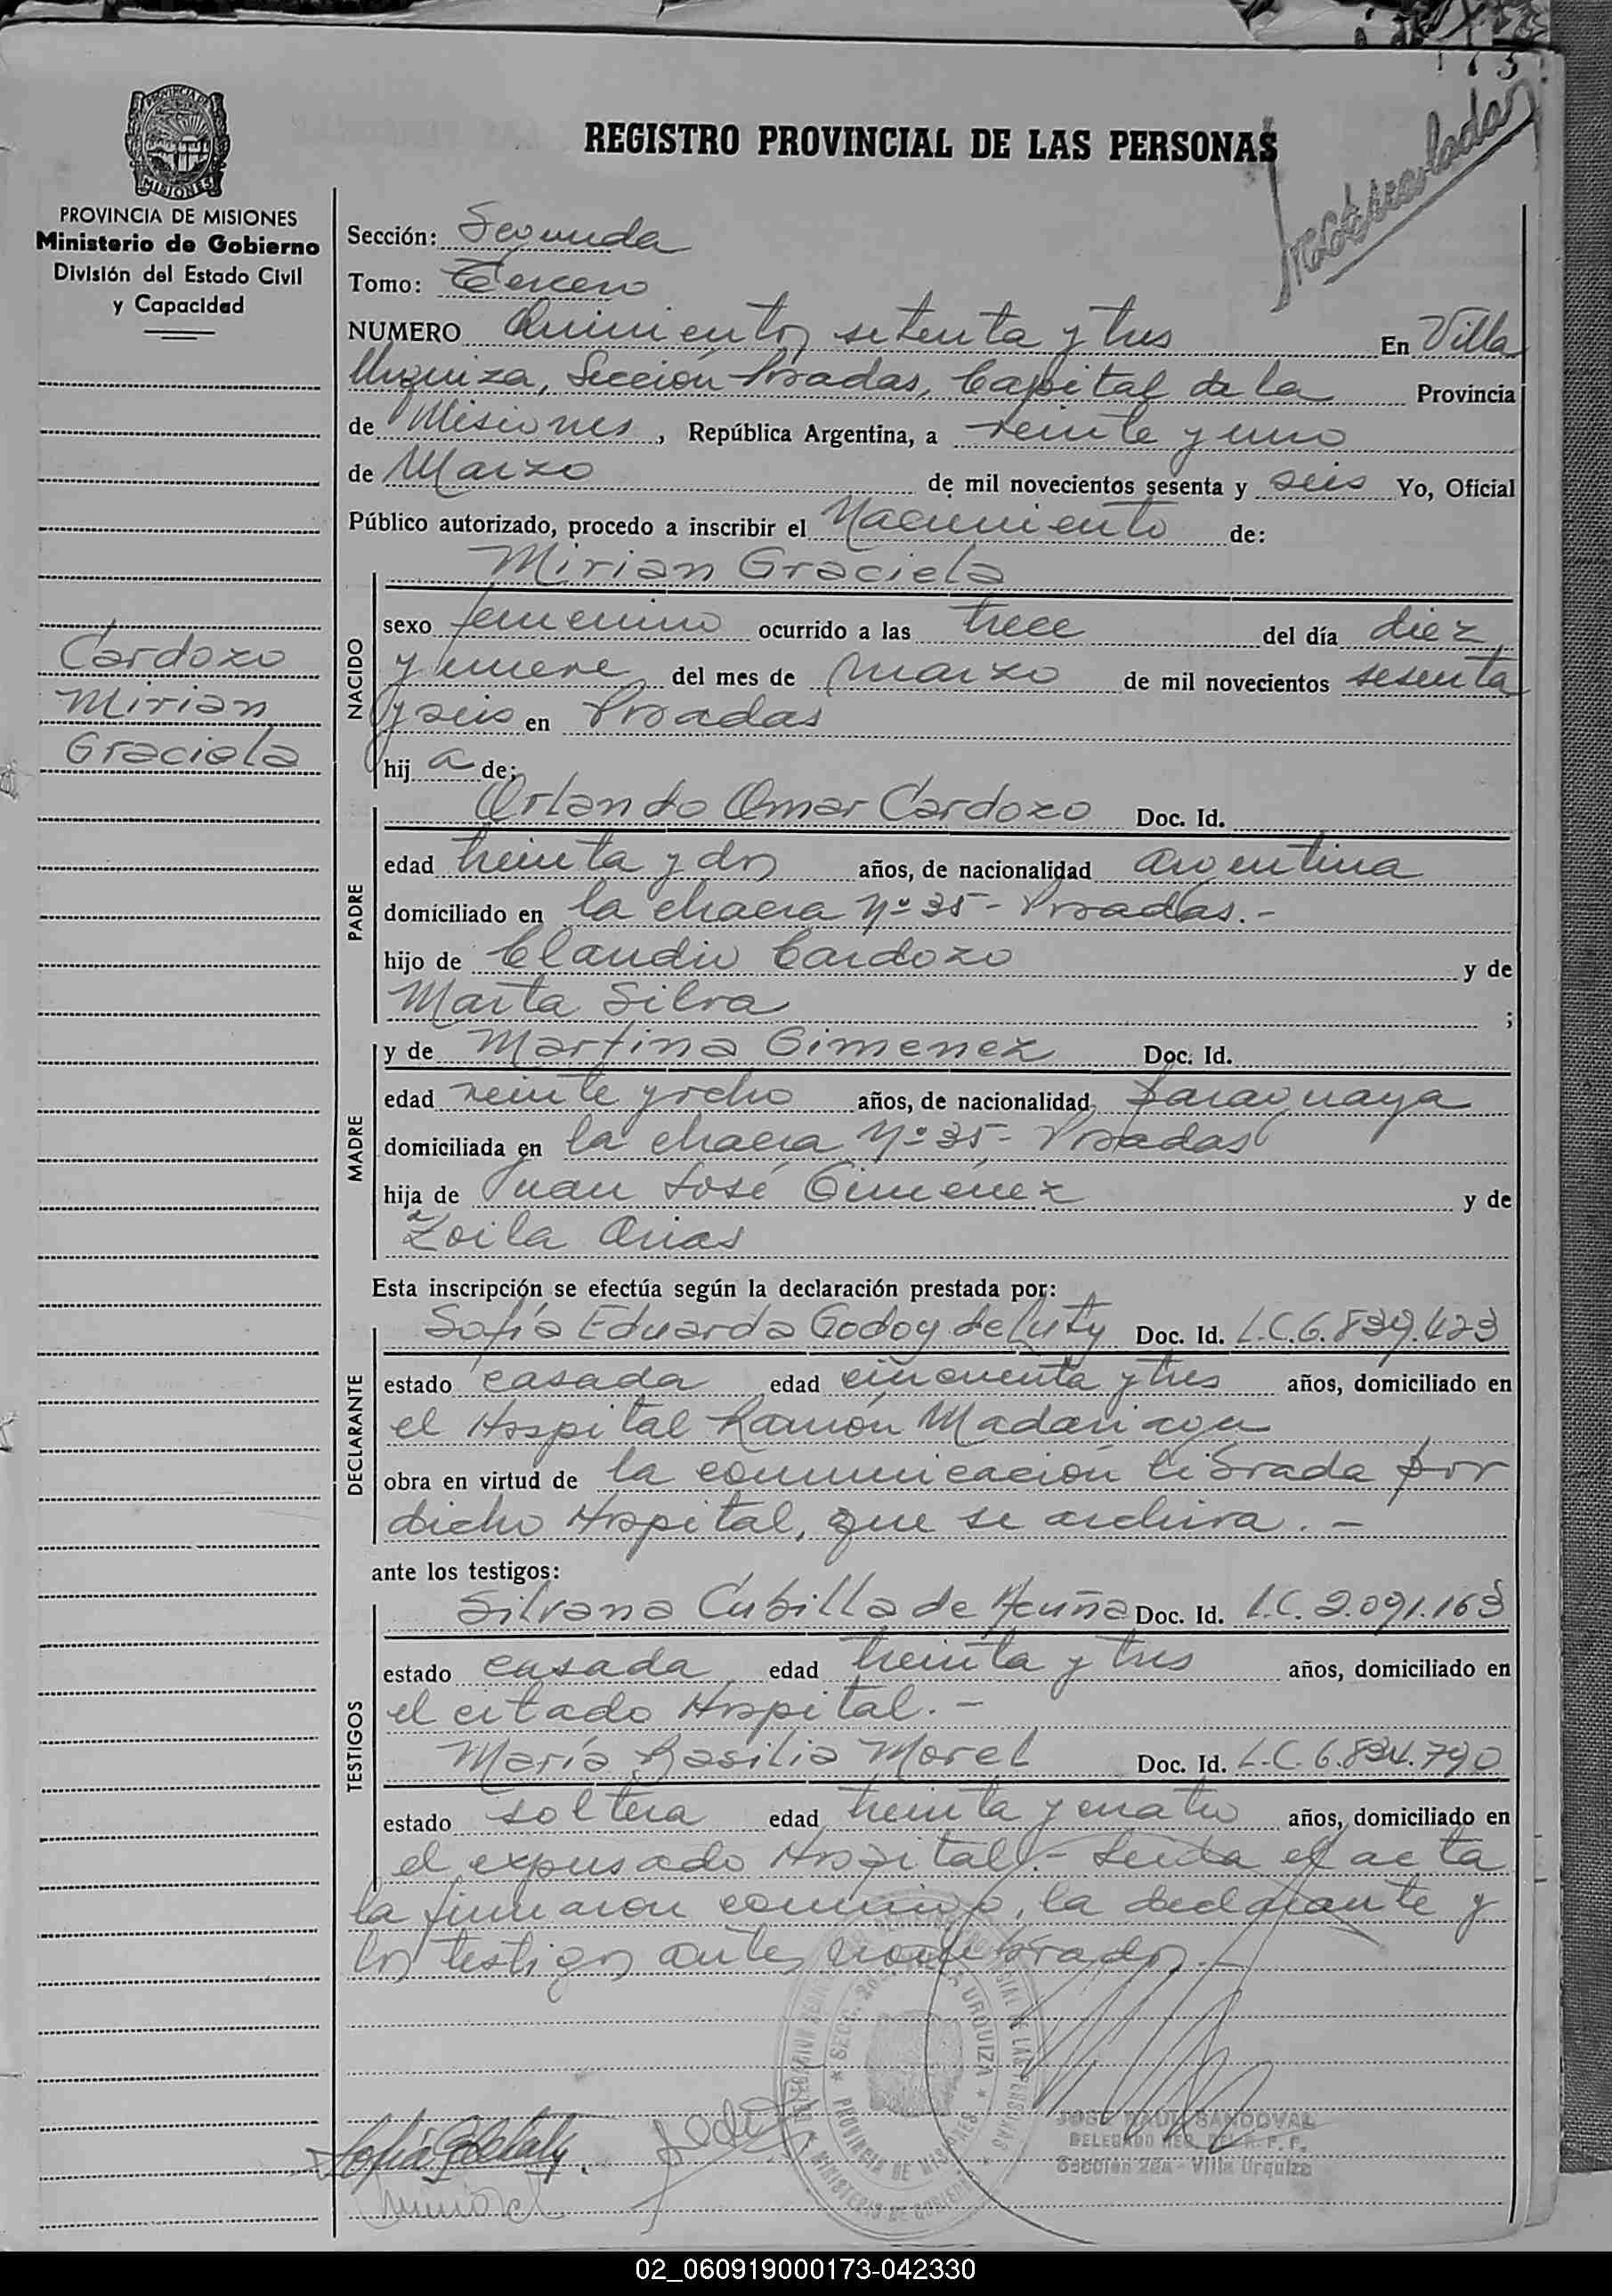 173
REGISTRO PROVINCIAL DE LAS PERSONAS
Matriculada
PROVINCIA DE MISIONES
Ministerio de Gobierno
División del Estado Civil
y Capacidad
Sección: Segunda
Tomo: Tercero
NUMERO Quinientos setenta y tres En Villa
Urquiza, Sección Posadas, Capital de la Provincia
de Misiones, República Argentina, a veinte y uno
de Marzo de mil novecientos sesenta y seis Yo, Oficial
Público autorizado, procedo a inscribir el Nacimiento de:
Cardozo
Mirian
Graciela
NACIDO
Mirian Graciela
sexo femenino ocurrido a las trece del día diez
y nueve del mes de marzo de mil novecientos sesenta
y seis en Posadas
hija de:
PADRE
Orlando Omar Cardozo Doc. Id.
edad treinta y dos años, de nacionalidad argentina
domiciliado en la chacra Nº 35 - Posadas.-
hijo de Claudio Cardozo y de
Marta Silva ;
MADRE
y de Martina Gimenez Doc. Id.
edad veinte y ocho años, de nacionalidad paraguaya
domiciliada en la chacra Nº 35 - Posadas
hija de Juan José Giménez y de
Zoila Arias
Esta inscripción se efectúa según la declaración prestada por:
DECLARANTE
Sofía Eduarda Godoy de Luty Doc. Id. L.C. 6.839.423
estado casada edad cincuenta y tres años, domiciliado en
el Hospital Ramón Madariaga
obra en virtud de la comunicación librada por
dicho Hospital, que se archiva. -
ante los testigos:
TESTIGOS
Silvana Cubilla de Acuña Doc. Id. L.C. 2.091.163
estado casada edad treinta y tres años, domiciliado en
el citado Hospital. -
María Basilia Morel Doc. Id. L.C. 6.834.790
estado soltera edad treinta y cuatro años, domiciliado en
el expresado Hospital.- Leída el acta
la firmaron conmigo, la declarante y
los testigos antes nombrados.-
SECC. 2da. VILLA URQUIZA
PROVINCIA DE MISIONES
MINISTERIO DE GOBIERNO
JOSE RAUL SANDOVAL
DELEGADO REG. DEL R. P. P.
Sección 2da - Villa Urquiza
02_060919000173-042330